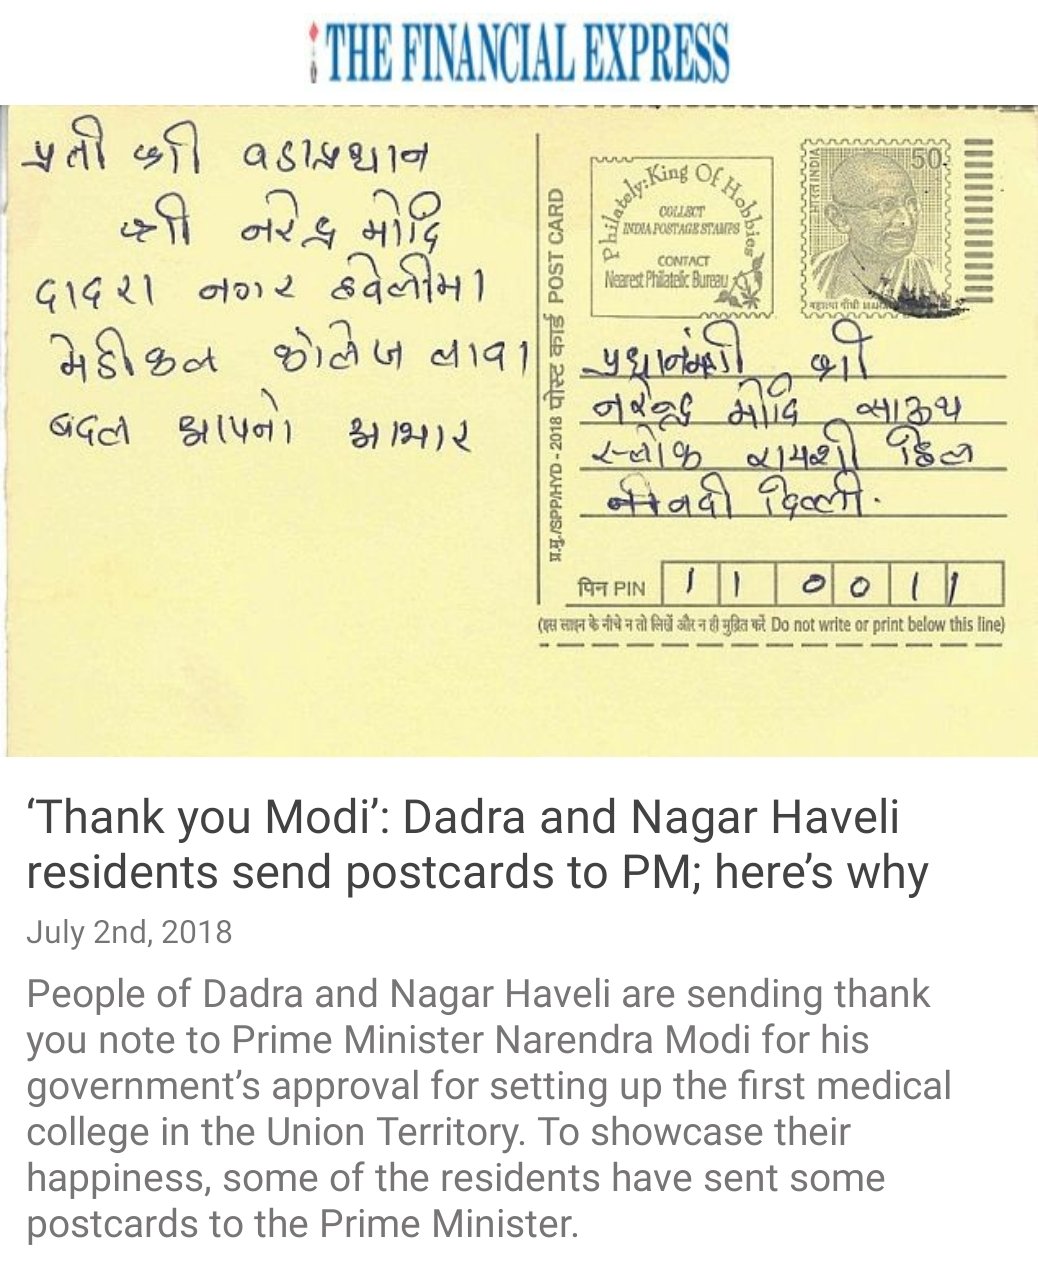 THE FINANCIAL EXPRESS
प्रती श्री वडाप्रधान
श्री नरेन्द्र मोदि
दादरा नगर हवेलीमा
मेडीकल कोलेज लावा
बदल आपनो आभार
प्र.मु./SPP/HYD - 2018 पोस्ट कार्ड POST CARD
Philately:King Of Hobbies
COLLECT
INDIA POSTAGE STAMPS
CONTACT
Nearest Philatelic Bureau
भारत INDIA
50
महात्मा गाँधी
प्रधानमंत्री श्री
नरेन्द्र मोदि साऊथ
ब्लोक रायशी हिल
नवी दिल्ली.
पिन PIN 1 1 0 0 1 1
(इस लाइन के नीचे न तो लिखें और न ही मुद्रित करें Do not write or print below this line)
‘Thank you Modi’: Dadra and Nagar Haveli
residents send postcards to PM; here’s why
July 2nd, 2018
People of Dadra and Nagar Haveli are sending thank
you note to Prime Minister Narendra Modi for his
government’s approval for setting up the first medical
college in the Union Territory. To showcase their
happiness, some of the residents have sent some
postcards to the Prime Minister.